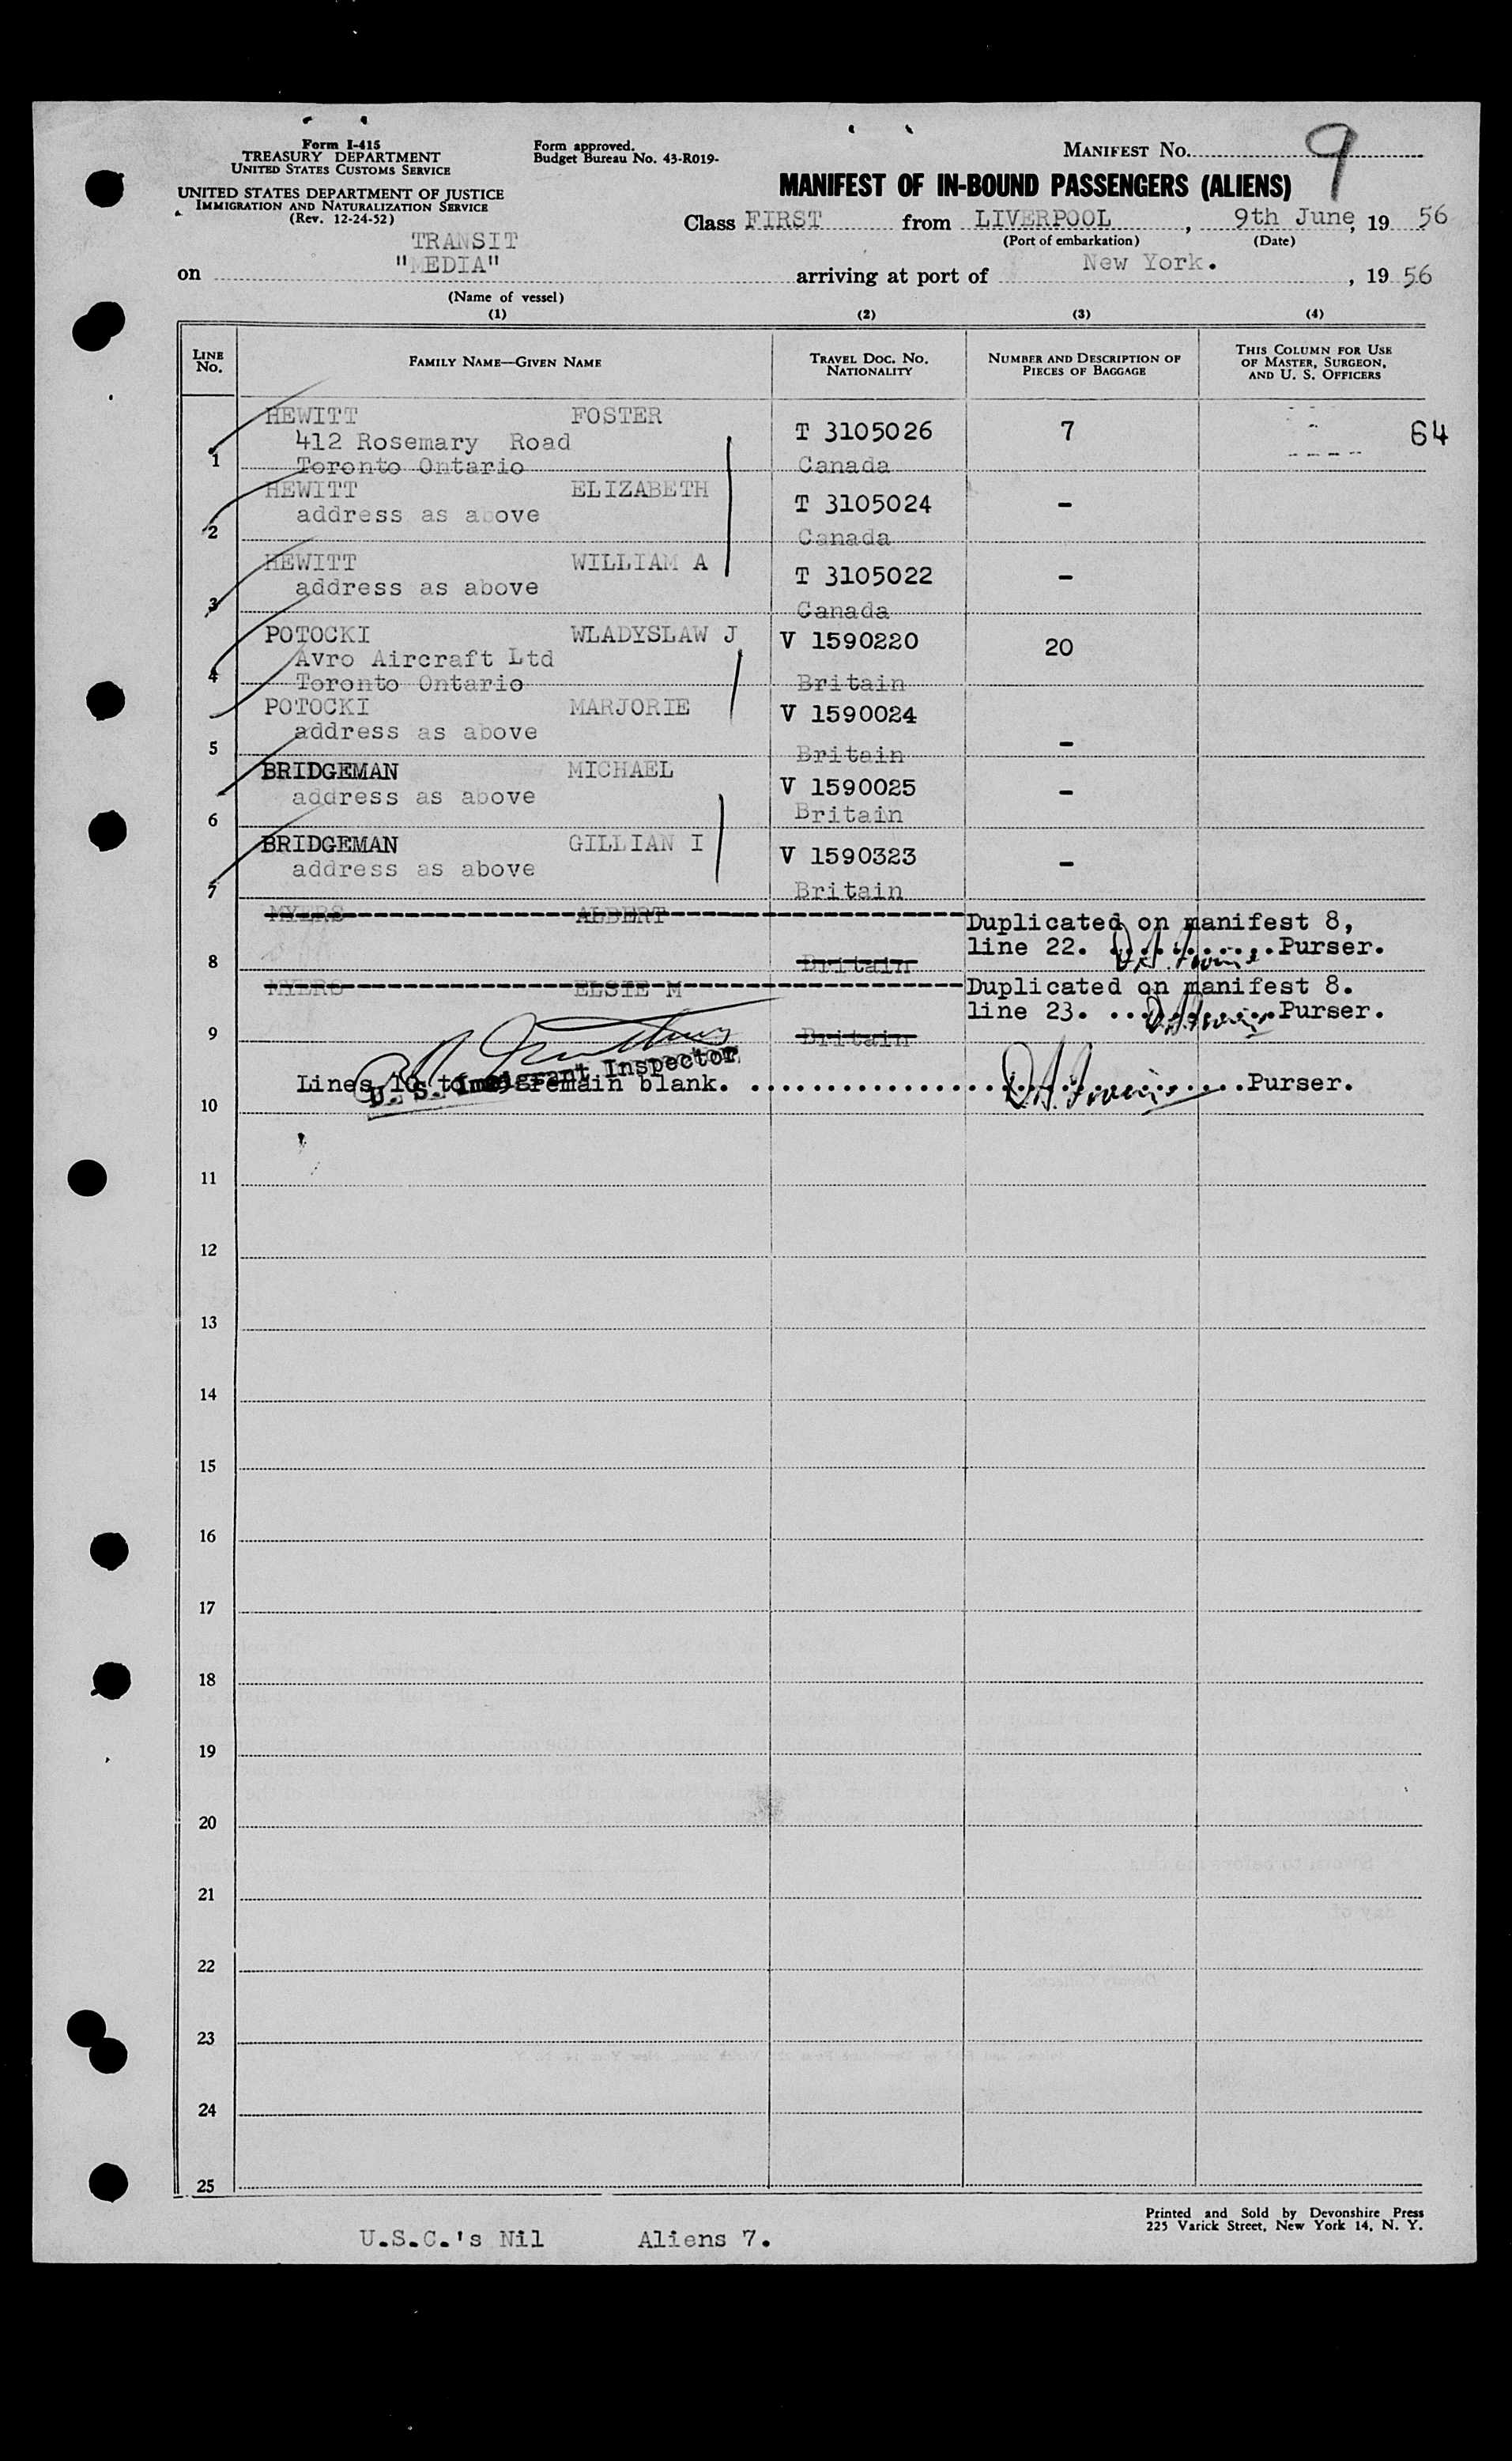 Form I-415
TREASURY DEPARTMENT
UNITED STATES CUSTOMS SERVICE
UNITED STATES DEPARTMENT OF JUSTICE
IMMIGRATION AND NATURALIZATION SERVICE
(Rev. 12-24-52)
Form approved.
Budget Bureau No. 43-R019-
MANIFEST No. 9
MANIFEST OF IN-BOUND PASSENGERS (ALIENS)
Class FIRST from LIVERPOOL, 9th June, 19 56
(Port of embarkation) (Date)
TRANSIT
on "MEDIA" arriving at port of New York. , 19 56
(Name of vessel)
(1) (2) (3) (4)
LINE No. FAMILY NAME—GIVEN NAME TRAVEL DOC. No. NATIONALITY NUMBER AND DESCRIPTION OF PIECES OF BAGGAGE THIS COLUMN FOR USE OF MASTER, SURGEON, AND U. S. OFFICERS
HEWITT FOSTER
412 Rosemary Road T 3105026 7 64
1 Toronto Ontario Canada
HEWITT ELIZABETH
address as above T 3105024 -
2 Canada
HEWITT WILLIAM A
address as above T 3105022 -
3 Canada
POTOCKI WLADYSLAW J V 1590220 20
Avro Aircraft Ltd
4 Toronto Ontario Britain
POTOCKI MARJORIE V 1590024
address as above
5 Britain -
BRIDGEMAN MICHAEL V 1590025
address as above -
6 Britain
BRIDGEMAN GILLIAN I V 1590323
address as above -
7 Britain
MYERS ALBERT Duplicated on manifest 8,
line 22. ............Purser.
8 Britain
MYERS ELSIE M Duplicated on manifest 8.
line 23. ............Purser.
9 Britain
U. S. Immigrant Inspector
Lines 10 to remain blank. ..............................Purser.
10
11
12
13
14
15
16
17
18
19
20
21
22
23
24
25
Printed and Sold by Devonshire Press
225 Varick Street, New York 14, N. Y.
U.S.C.'s Nil Aliens 7.